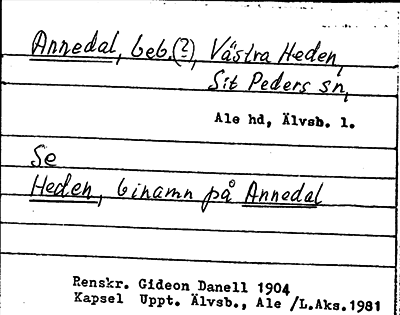 Annedal, beb.(?), Västra Heden,
Sit Peders sn,
Ale hd, Älvsb. l.
Se
Heden, binamn på Annedal
Renskr. Gideon Danell 1904
Kapsel Uppt. Älvsb., Ale /L.Aks.1981